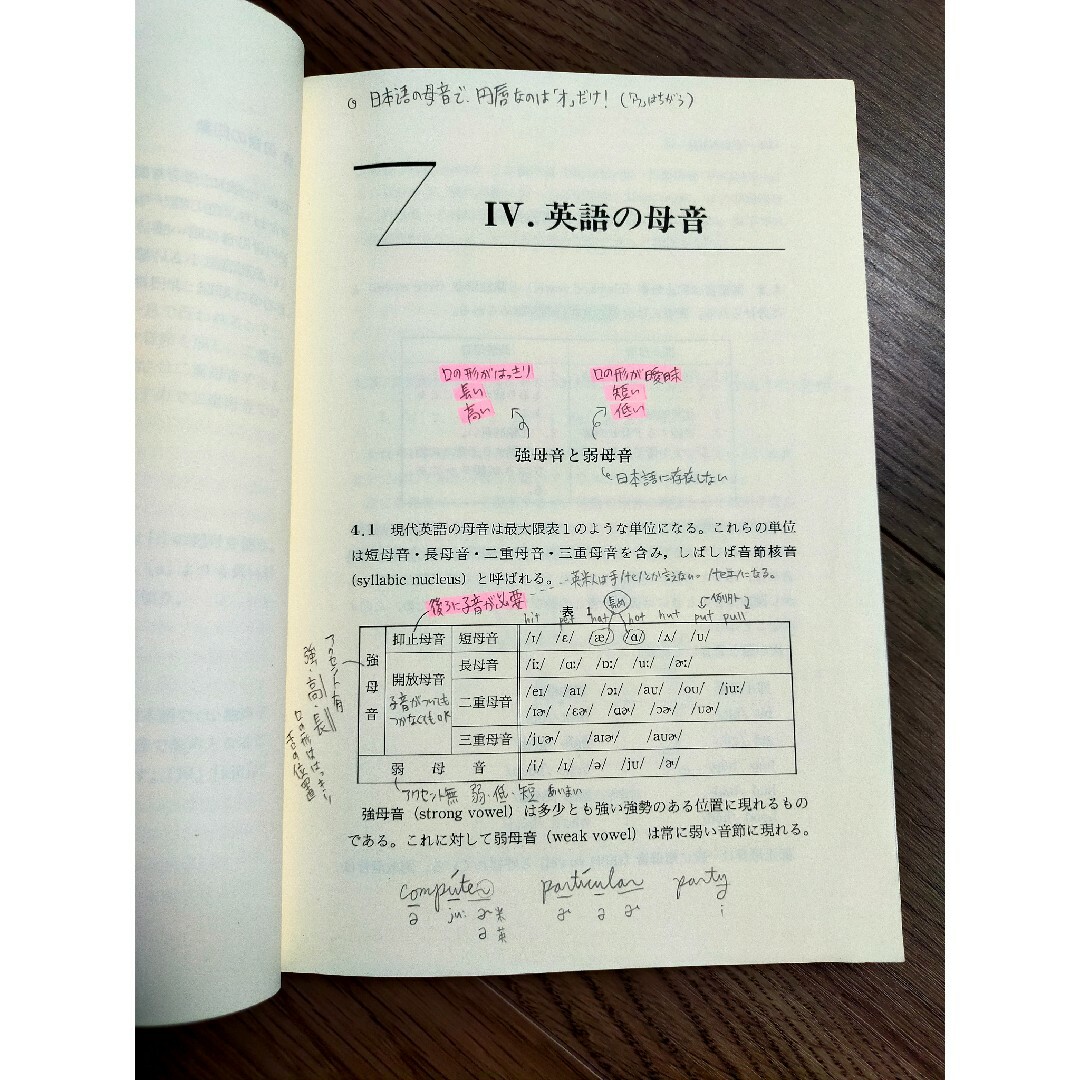 ◎ 日本語の母音で、円唇なのは「オ」だけ！(「ウ」はちがう)
IV. 英語の母音
口の形がはっきり
長い
高い
口の形が曖昧
短い
低い
強母音と弱母音
日本語に存在しない
4.1 現代英語の母音は最大限表1のような単位になる。これらの単位
は短母音・長母音・二重母音・三重母音を含み，しばしば音節核音
(syllabic nucleus) と呼ばれる。
英米人は手/te/とか言えない。/teɪ/になる。
後ろに子音が必要
表 1
長め
例外
hit pet hat hot hut put pull
強母音 抑止母音 短母音 /ɪ/ /ɛ/ /æ/ /ɑ/ /ʌ/ /ʊ/
開放母音 長母音 /iː/ /ɑː/ /ɒː/ /uː/ /ɚː/
子音がついても
つかなくてもOK
二重母音 /eɪ/ /aɪ/ /ɔɪ/ /aʊ/ /oʊ/ /juː/
/ɪɚ/ /ɛɚ/ /ɑɚ/ /ɔɚ/ /ʊɚ/
三重母音 /jʊɚ/ /aɪɚ/ /aʊɚ/
弱母音 /i/ /ɪ/ /ə/ /jʊ/ /ɚ/
アクセント有
強・高・長
口の形ははっきり
舌の位置
アクセント無 弱・低・短 あいまい
強母音 (strong vowel) は多少とも強い強勢のある位置に現れるもの
である。これに対して弱母音 (weak vowel) は常に弱い音節に現れる。
compúter partícular party
ə juː ɚ 米 ɚ ə ɚ i
ə 英